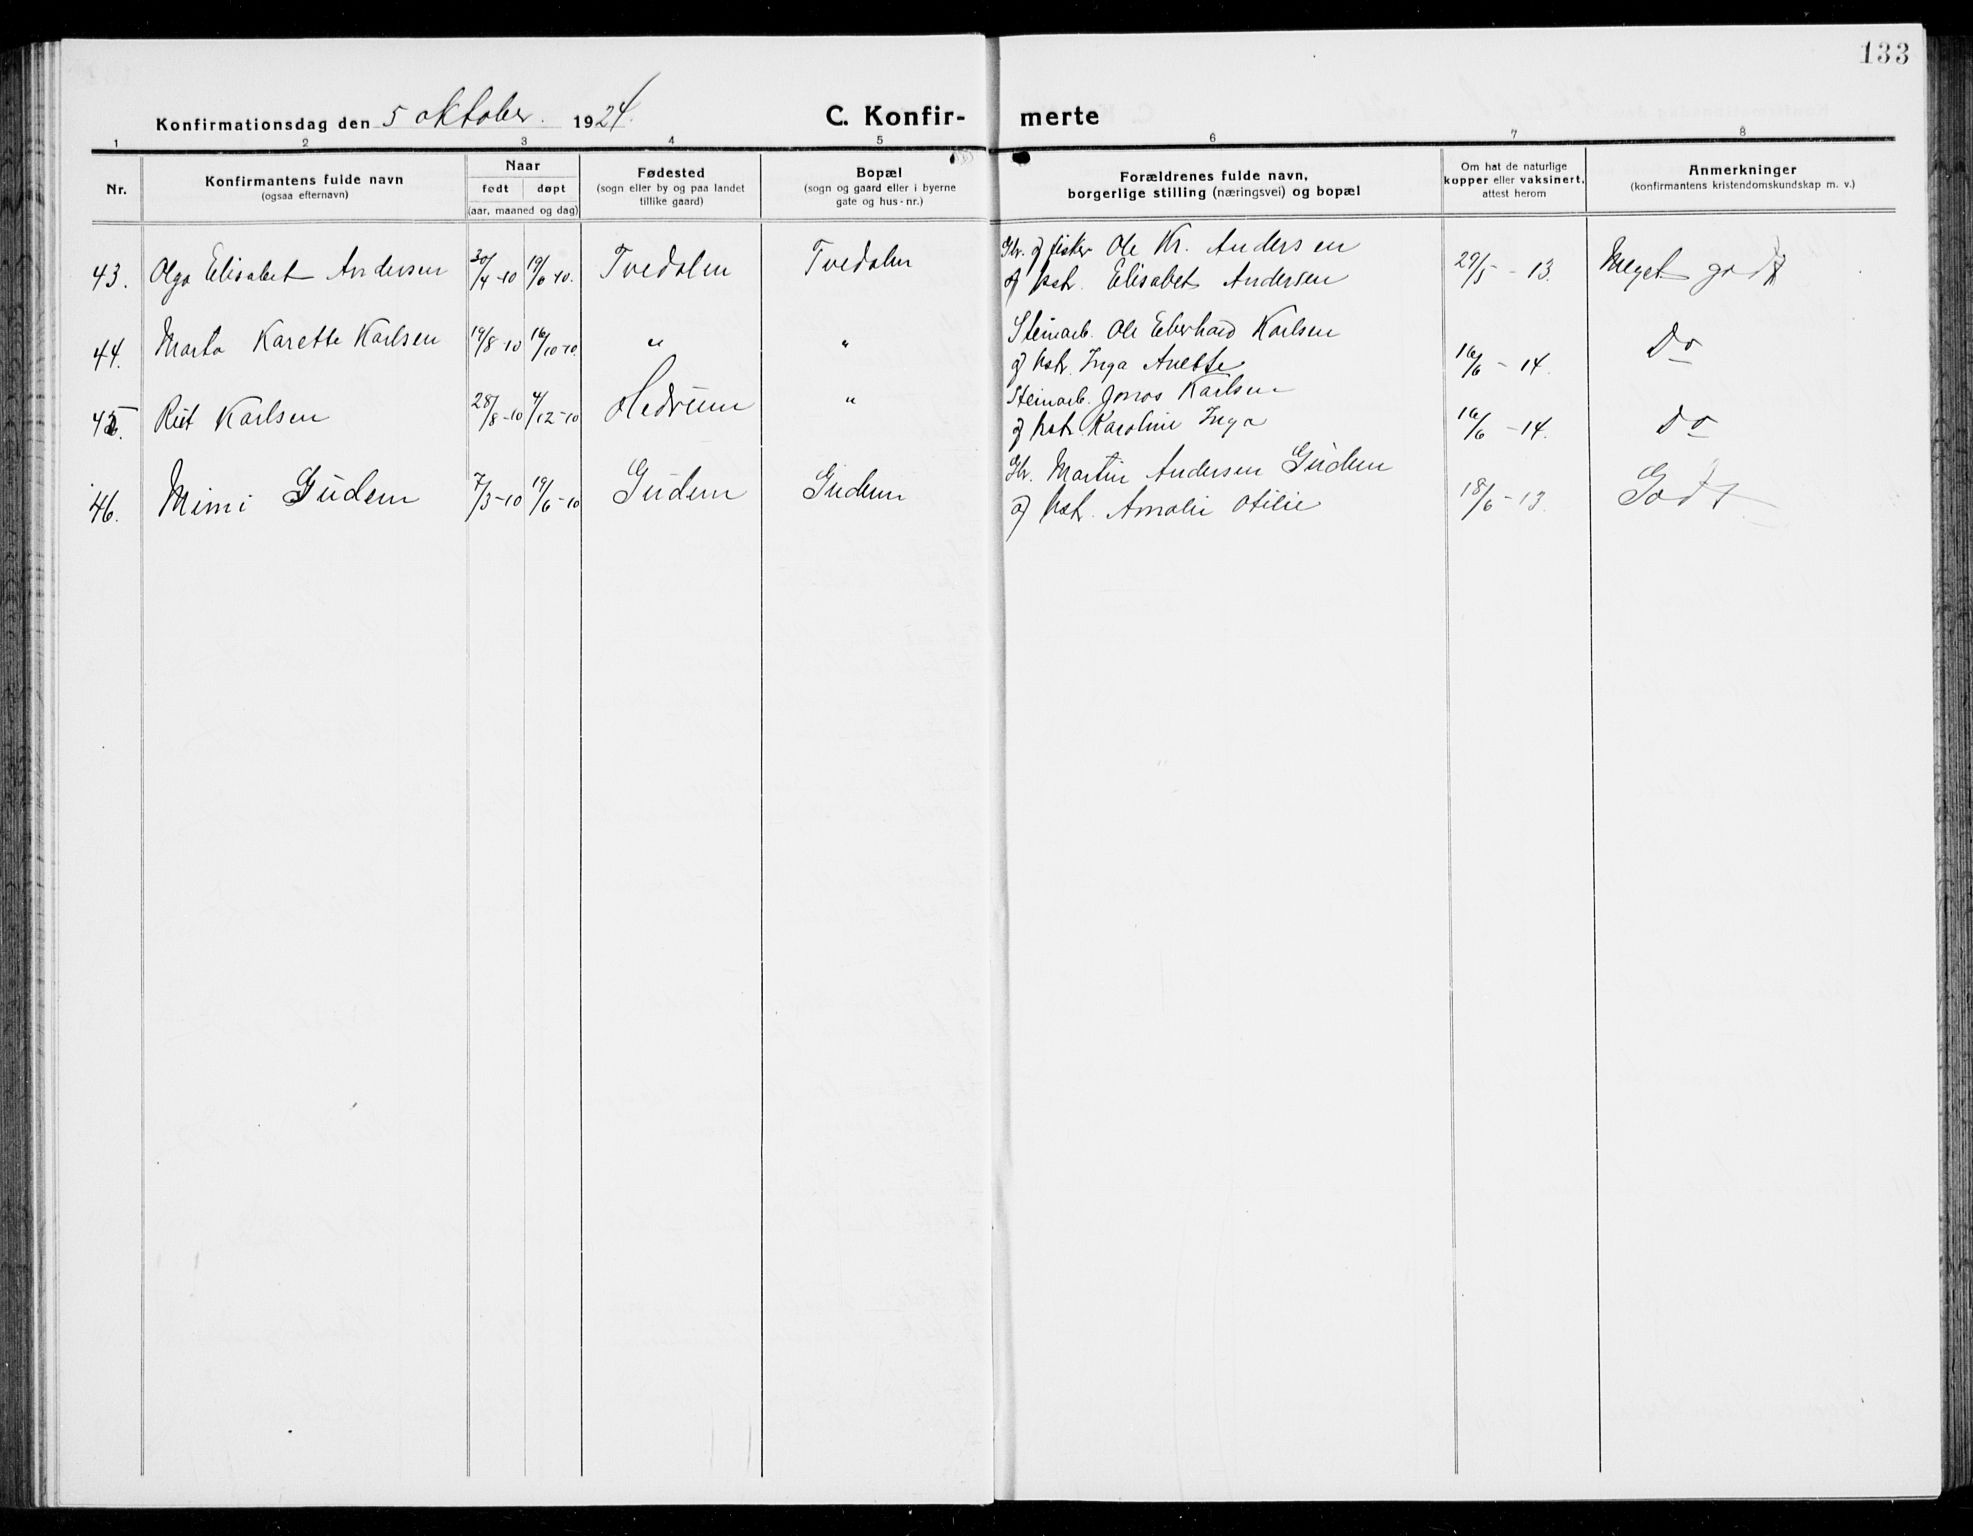 133
Konfirmationsdag den 5 oktober. 1924. C. Konfir- merte
1 2 3 4 5 6 7 8
Nr.
Konfirmantens fulde navn
(ogsaa efternavn)
Naar
født døpt
(aar, maaned og dag)
Fødested
(sogn eller by og paa landet
tillike gaard)
Bopæl
(sogn og gaard eller i byerne
gate og hus-nr.)
Forældrenes fulde navn,
borgerlige stilling (næringsvei) og bopæl
Om hat de naturlige
kopper eller vaksinert,
attest herom
Anmerkninger
(konfirmantens kristendomskundskap m. v.)
Gbr. og fisker Ole Kr. Andersen
43. Olga Elisabet Andersen 30/4-10 19/6-10. Tvedalen Tvedalen og hstr. Elisabet Andersen 29/5-13. Meget godt
Steinarb. Ole Eberhard Karlsen
44. Marta Karette Karlsen 19/8-10 16/10-10. " " og hstr. Inga Anette 16/6-14. Do
Steinarb. Jonas Karlsen
45. Rut Karlsen 28/8-10 4/12-10 Hedrum " og hstr. Karoline Inga 16/6-14. Do
Gbr. Martin Andersen Gudem
46. Mimi Gudem 7/3-10 19/6-10 Gudem Gudem og hstr. Amalie Otilie 18/6-13. Godt